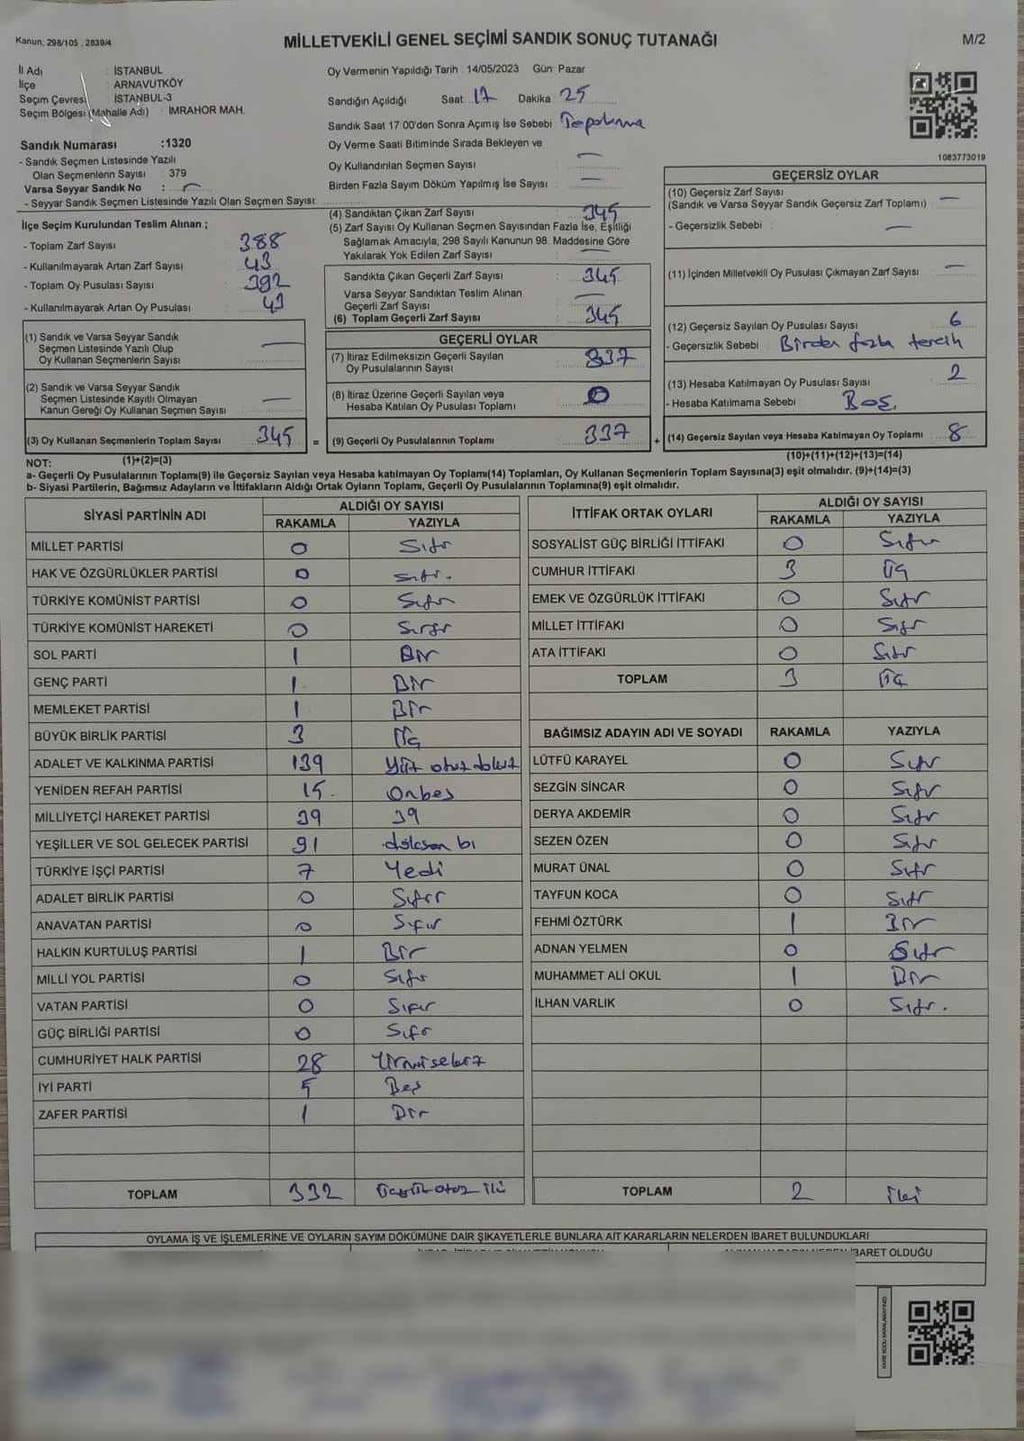 Kanun: 298/105 , 2839/4
MİLLETVEKİLİ GENEL SEÇİMİ SANDIK SONUÇ TUTANAĞI
M/2
İl Adı : İSTANBUL
İlçe : ARNAVUTKÖY
Seçim Çevresi : İSTANBUL-3
Seçim Bölgesi (Mahalle Adı) : İMRAHOR MAH.
Sandık Numarası :1320
- Sandık Seçmen Listesinde Yazılı
Olan Seçmenlerin Sayısı : 379
Varsa Seyyar Sandık No : —
- Seyyar Sandık Seçmen Listesinde Yazılı Olan Seçmen Sayısı:
Oy Vermenin Yapıldığı Tarih : 14/05/2023 Gün: Pazar
Sandığın Açıldığı Saat 17 Dakika 25
Sandık Saat 17:00'den Sonra Açımış İse Sebebi
Oy Verme Saati Bitiminde Sırada Bekleyen ve
Oy Kullandırılan Seçmen Sayısı —
Birden Fazla Sayım Döküm Yapılmış İse Sayısı —
1083773019
İlçe Seçim Kurulundan Teslim Alınan ;
- Toplam Zarf Sayısı 388
- Kullanılmayarak Artan Zarf Sayısı 43
- Toplam Oy Pusulası Sayısı 392
- Kullanılmayarak Artan Oy Pusulası : 43
(1) Sandık ve Varsa Seyyar Sandık
Seçmen Listesinde Yazılı Olup
Oy Kullanan Seçmenlerin Sayısı —
(2) Sandık ve Varsa Seyyar Sandık
Seçmen Listesinde Kayıtlı Olmayan
Kanun Gereği Oy Kullanan Seçmen Sayısı —
(3) Oy Kullanan Seçmenlerin Toplam Sayısı 345
(1)+(2)=(3)
(4) Sandıktan Çıkan Zarf Sayısı 345
(5) Zarf Sayısı Oy Kullanan Seçmen Sayısından Fazla İse, Eşitliği
Sağlamak Amacıyla, 298 Sayılı Kanunun 98. Maddesine Göre
Yakılarak Yok Edilen Zarf Sayısı
Sandıkta Çıkan Geçerli Zarf Sayısı : 345
Varsa Seyyar Sandıktan Teslim Alınan
Geçerli Zarf Sayısı —
(6) Toplam Geçerli Zarf Sayısı : 345
GEÇERLİ OYLAR
(7) İtiraz Edilmeksizin Geçerli Sayılan
Oy Pusulalarının Sayısı : 337
(8) İtiraz Üzerine Geçerli Sayılan veya
Hesaba Katılan Oy Pusulası Toplamı : 0
= (9) Geçerli Oy Pusulalarının Toplamı : 337
GEÇERSİZ OYLAR
(10) Geçersiz Zarf Sayısı
(Sandık ve Varsa Seyyar Sandık Geçersiz Zarf Toplamı) —
- Geçersizlik Sebebi : —
(11) İçinden Milletvekili Oy Pusulası Çıkmayan Zarf Sayısı —
(12) Geçersiz Sayılan Oy Pusulası Sayısı 6
- Geçersizlik Sebebi : Birden fazla tercih
(13) Hesaba Katılmayan Oy Pusulası Sayısı 2
- Hesaba Katılmama Sebebi : Boş.
+ (14) Geçersiz Sayılan veya Hesaba Katılmayan Oy Toplamı 8
(10)+(11)+(12)+(13)=(14)
NOT:
a- Geçerli Oy Pusulalarının Toplamı(9) ile Geçersiz Sayılan veya Hesaba katılmayan Oy Toplamı(14) Toplamları, Oy Kullanan Seçmenlerin Toplam Sayısına(3) eşit olmalıdır. (9)+(14)=(3)
b- Siyasi Partilerin, Bağımsız Adayların ve İttifakların Aldığı Ortak Oyların Toplamı, Geçerli Oy Pusulalarının Toplamına(9) eşit olmalıdır.
SİYASİ PARTİNİN ADI
ALDIĞI OY SAYISI
RAKAMLA YAZIYLA
MİLLET PARTİSİ 0 Sıfır
HAK VE ÖZGÜRLÜKLER PARTİSİ 0 Sıfır.
TÜRKİYE KOMÜNİST PARTİSİ 0 Sıfır
TÜRKİYE KOMÜNİST HAREKETİ 0 Sıfır
SOL PARTİ 1 Bir
GENÇ PARTİ 1 Bir
MEMLEKET PARTİSİ 1 Bir
BÜYÜK BİRLİK PARTİSİ 3 Üç
ADALET VE KALKINMA PARTİSİ 139 Yüz otuz dokuz
YENİDEN REFAH PARTİSİ 15 Onbeş
MİLLİYETÇİ HAREKET PARTİSİ 39 39
YEŞİLLER VE SOL GELECEK PARTİSİ 91 doksan bi
TÜRKİYE İŞÇİ PARTİSİ 7 Yedi
ADALET BİRLİK PARTİSİ 0 Sıfır
ANAVATAN PARTİSİ 0 Sıfır
HALKIN KURTULUŞ PARTİSİ 1 Bir
MİLLİ YOL PARTİSİ 0 Sıfır
VATAN PARTİSİ 0 Sıfır
GÜÇ BİRLİĞİ PARTİSİ 0 Sıfır
CUMHURİYET HALK PARTİSİ 28 Yirmisekiz
İYİ PARTİ 5 Beş
ZAFER PARTİSİ 1 Bir
TOPLAM 332 Üçyüz otuz iki
İTTİFAK ORTAK OYLARI
ALDIĞI OY SAYISI
RAKAMLA YAZIYLA
SOSYALİST GÜÇ BİRLİĞİ İTTİFAKI 0 Sıfır
CUMHUR İTTİFAKI 3 Üç
EMEK VE ÖZGÜRLÜK İTTİFAKI 0 Sıfır
MİLLET İTTİFAKI 0 Sıfır
ATA İTTİFAKI 0 Sıfır
TOPLAM 3 Üç
BAĞIMSIZ ADAYIN ADI VE SOYADI RAKAMLA YAZIYLA
LÜTFÜ KARAYEL 0 Sıfır
SEZGİN SİNCAR 0 Sıfır
DERYA AKDEMİR 0 Sıfır
SEZEN ÖZEN 0 Sıfır
MURAT ÜNAL 0 Sıfır
TAYFUN KOCA 0 Sıfır
FEHMİ ÖZTÜRK 1 Bir
ADNAN YELMEN 0 Sıfır
MUHAMMET ALİ OKUL 1 Bir
İLHAN VARLIK 0 Sıfır.
TOPLAM 2 İki
OYLAMA İŞ VE İŞLEMLERİNE VE OYLARIN SAYIM DÖKÜMÜNE DAİR ŞİKAYETLERLE BUNLARA AİT KARARLARIN NELERDEN İBARET BULUNDUKLARI
İBARET OLDUĞU